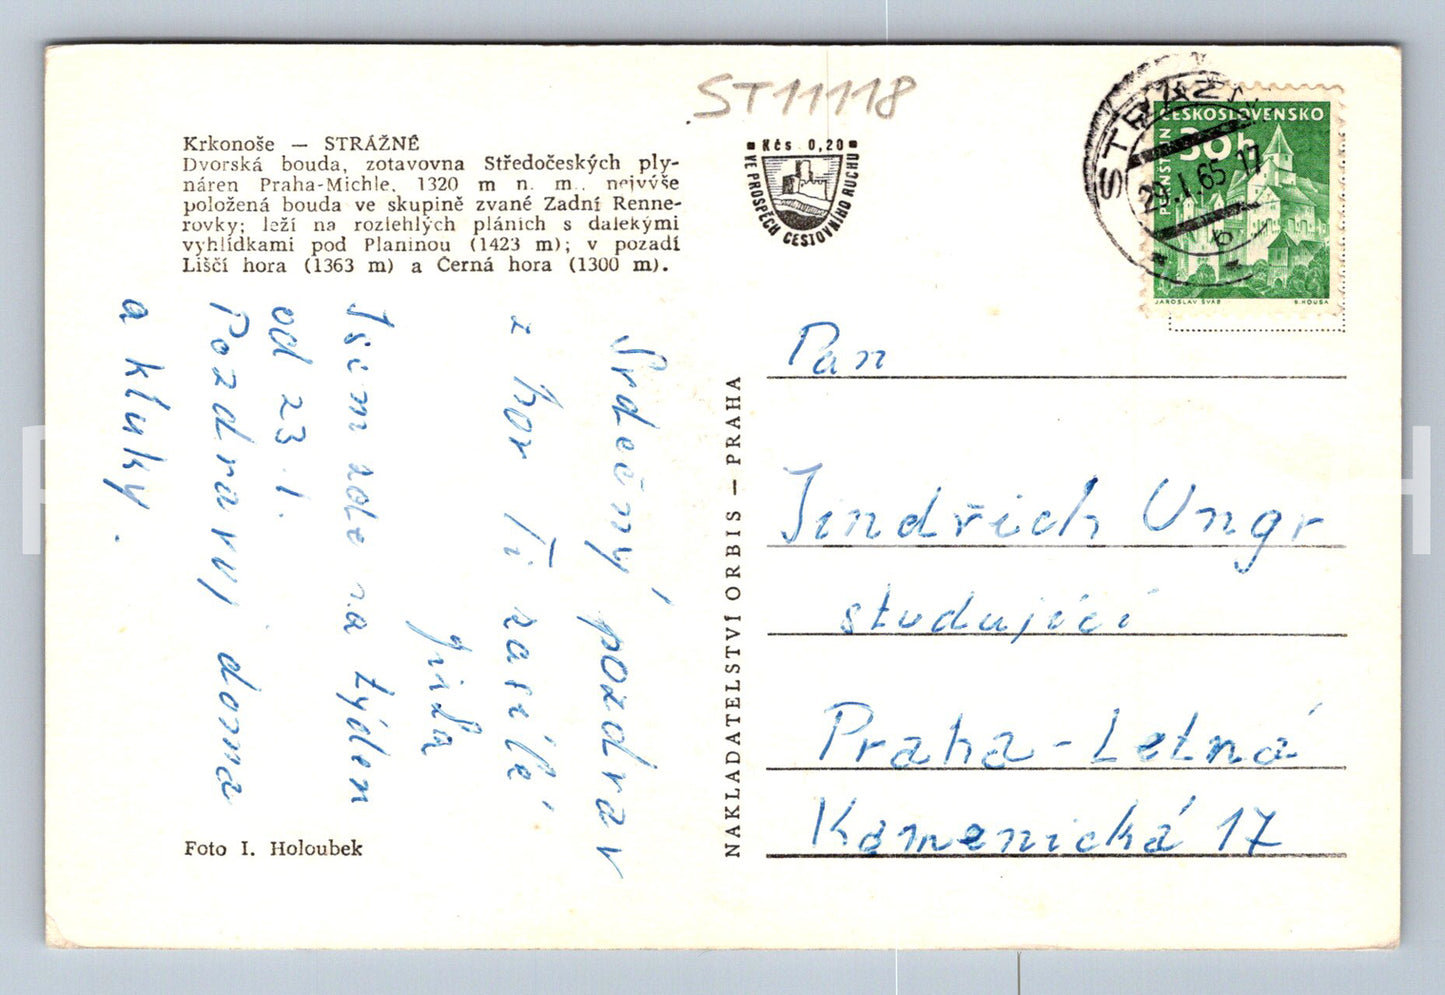 ST11118
Krkonoše — STRÁŽNÉ
Dvorská bouda, zotavovna Středočeských ply-
náren Praha-Michle, 1320 m n. m., nejvýše
položená bouda ve skupině zvané Zadní Renne-
rovky; leží na rozlehlých pláních s dalekými
vyhlídkami pod Planinou (1423 m); v pozadí
Liščí hora (1363 m) a Černá hora (1300 m).
Kčs 0,20
VE PROSPĚCH CESTOVNÍHO RUCHU
STRÁŽNÉ
29.1.65-17
b
ČESKOSLOVENSKO
30h
PERNŠTEJN
JAROSLAV ŠVÁB
B. HOUSA
Srdečný pozdrav
z hor Ti zasílá
Jirka
Jsem zde na týden
od 23.1.
Pozdravuj doma
a kluky.
Foto I. Holoubek
NAKLADATELSTVÍ ORBIS — PRAHA
Pan
Jindřich Ungr
studující
Praha-Letná
Kamenická 17